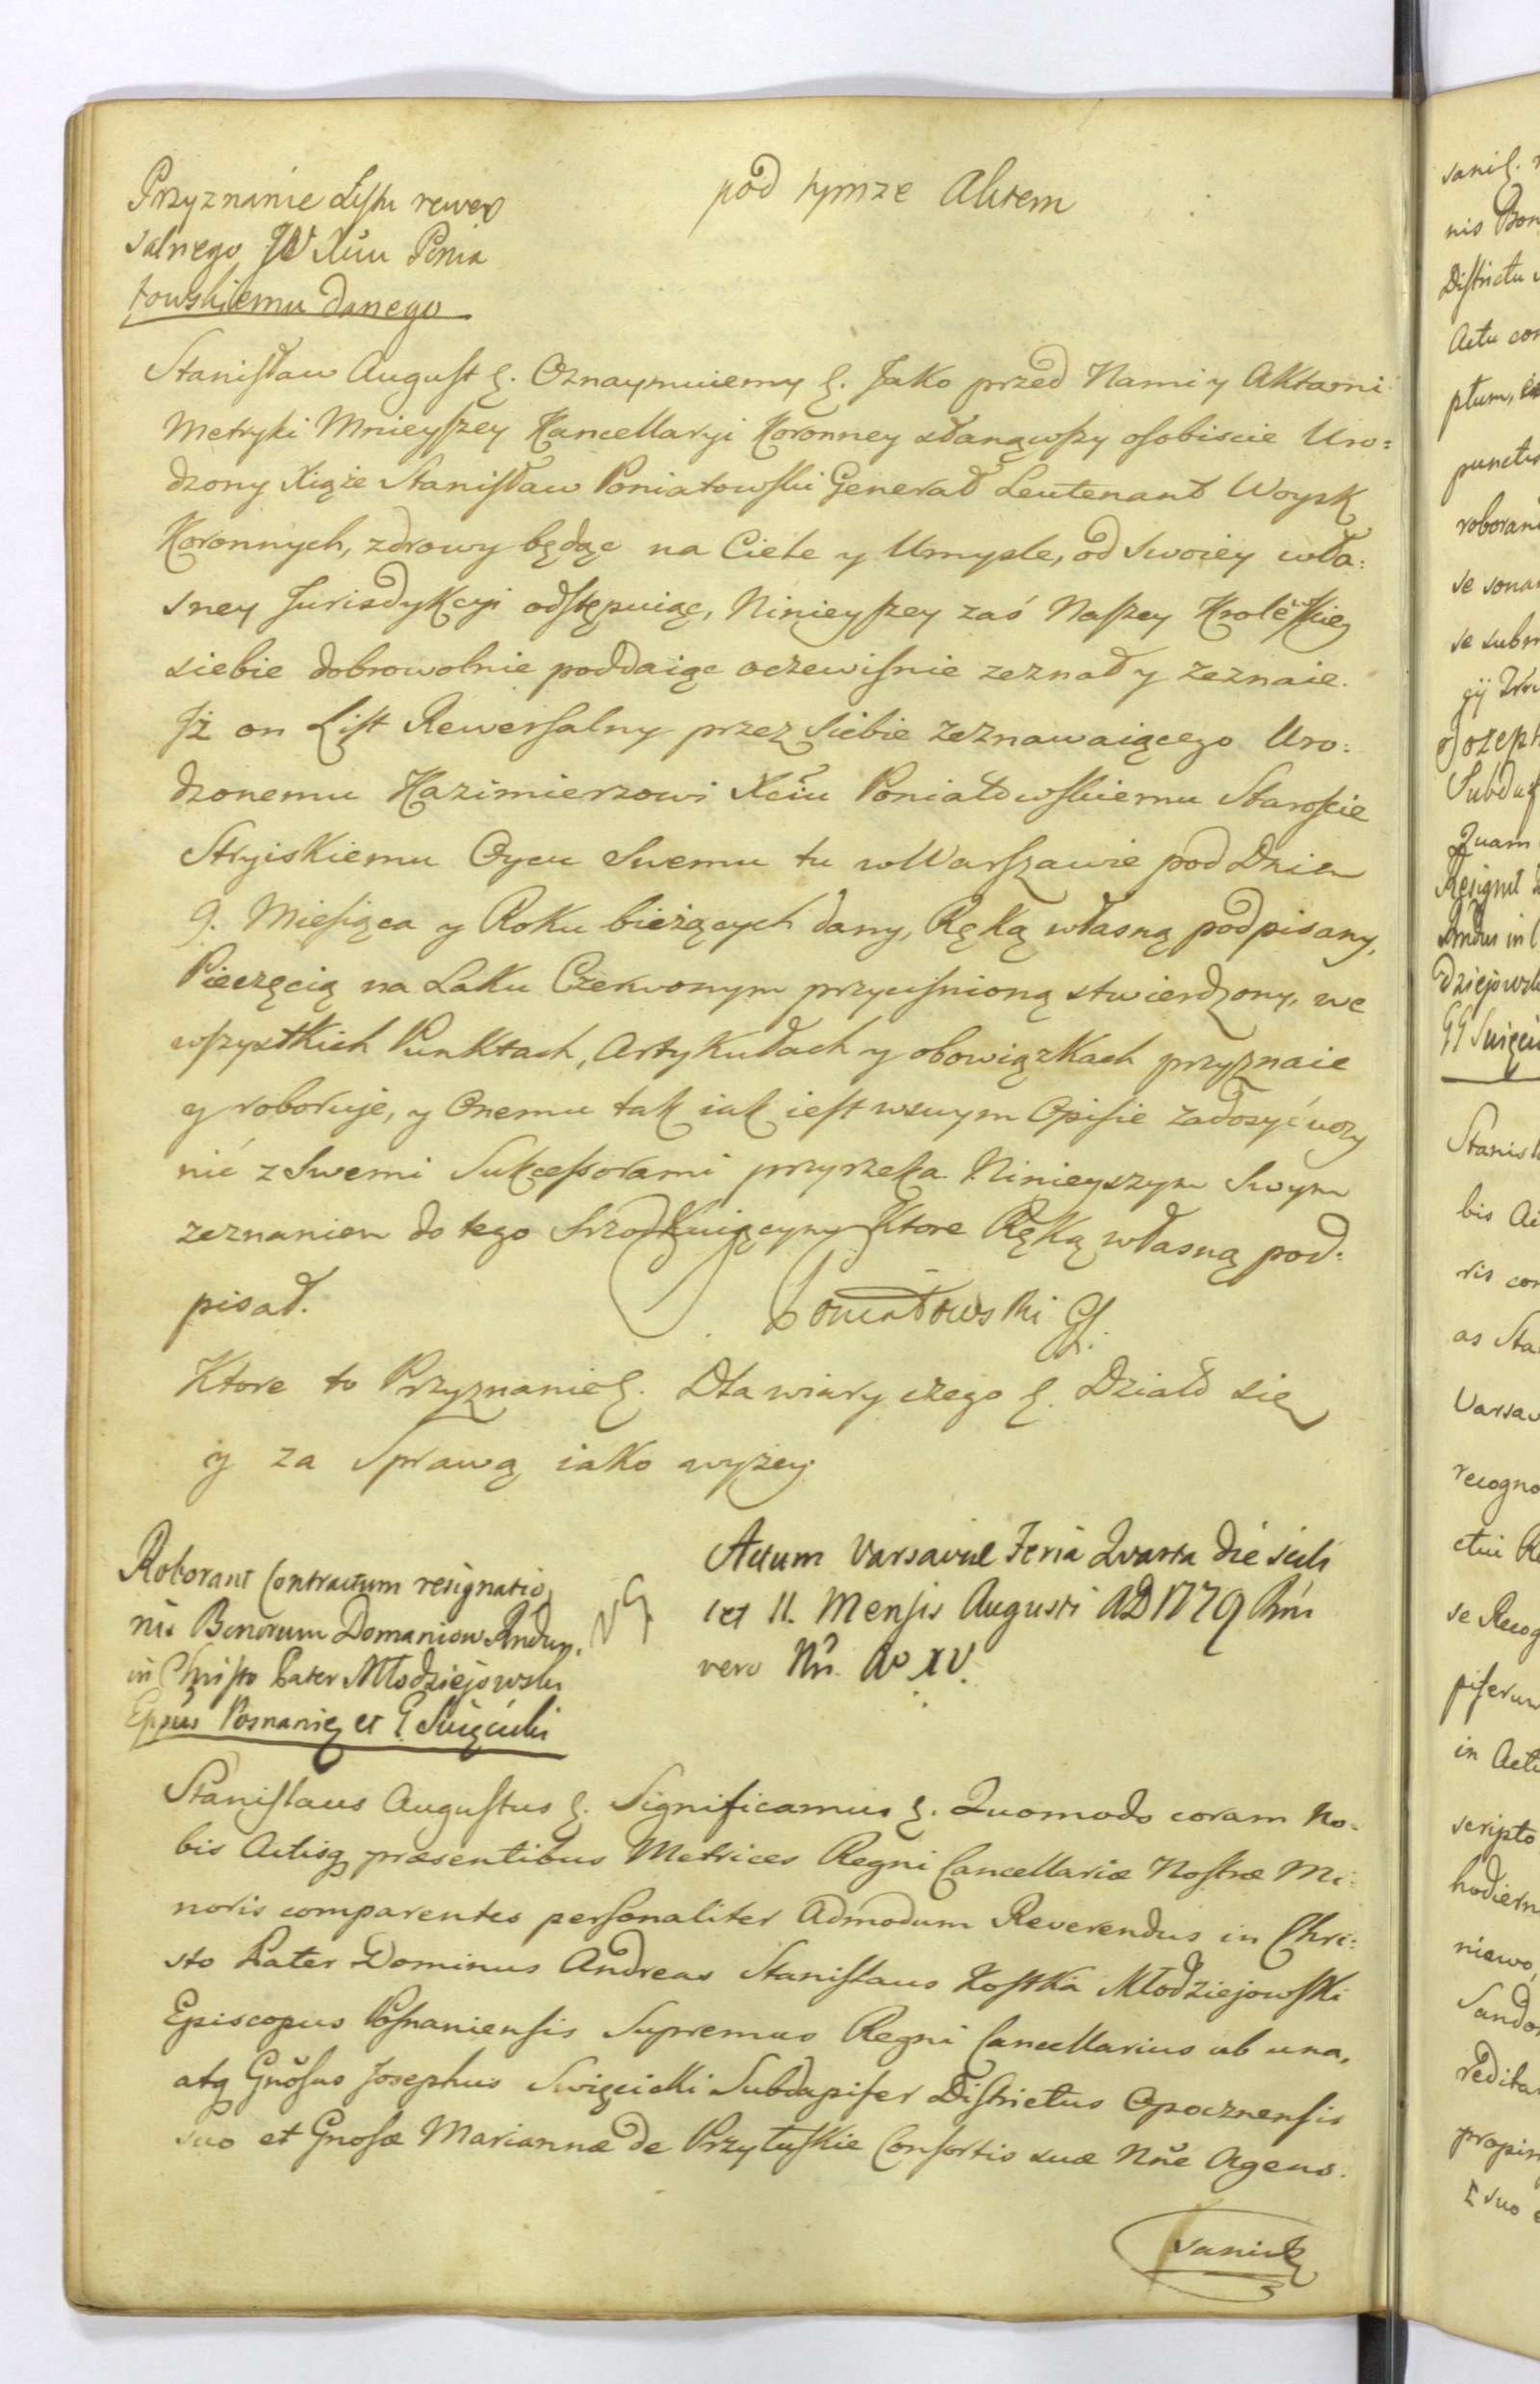 Przyznanie Listu rewer
salnego JW Xciu Ponia
towskiemu danego
pod tymze Aktem
Stanisław August &. Oznaymuiemy &. Jako przed Nami y Aktami
Metryki Mnieyszey Kancellaryi Koronney stanąwszy osobiscie Uro=
dzony Xiąże Stanisław Poniatowski Generał Leutenant Woysk
Koronnych, zdrowy będąc na Ciele y Umysle, od swoiey wła=
sney Jurisdykcyi odstępuiąc, Ninieyszey zaś Naszey Krolewskiey
siebie dobrowolnie poddaiąc oczewisnie zeznał y zeznaie.
Jż on List Rewersalny przez Siebie zeznawaiącego Uro=
dzonemu Kazimierzowi Xciu Poniatowskiemu Staroscie
Stryiskiemu Oycu Swemu tu w Warszawie pod Dniem
9. Miesiąca y Roku bieżących dany, Ręką własną podpisany,
Pieczęcią na Laku Czerwonym przycisnioną stwierdzony, we
wszystkich Punktach, Artykułach y obowiązkach przyznaie
y roboruje, y Onemu tak iak iest wswym Opisie zadosyć uczy
nić z Swemi Sukcessorami przyrzeka Ninieyszym Swym
zeznaniem do tego srzodkuiącym Ktore Ręką własną pod=
pisał.
Poniatowski GL.
Ktore to Przyznanie &. Dla wiary czego &. Działo się
y za Sprawą iako wyżey
Roborant Contractum resignatio
nis Bonorum Domaniow Rndus.
in Christo Pater Młodziejowski
Eppus Posnanien et G Swięcicki
Actum Varsaviae Feria Quarta die scili
cet 11. Mensis Augusti AD 1779 Rni
vero Nri Ao XV.
Stanislaus Augustus &. Significamus &. Quomodo coram No=
bis Actisq praesentibus Metrices Regni Cancellariae Nostrae Mi=
noris comparentes personaliter Admodum Reverendus in Chri=
sto Pater Dominus Andreas Stanislaus Kostka Młodziejowski
Episcopus Posnaniensis Supremus Regni Cancellarius ab una,
atq Gnosus Josephus Swięcicki Subdapifer Districtus Opocznensis
suo et Gnosae Mariannae de Przyłuskie Consortis suae Nne Agens.
sanis
sanis
nis Bon
Districtu
Actu con
ptum,
puncti
roboran
se sona
se subm
Joseph
Subdap
Quam
Resignt
Rndus in C
dziejowski
GG Swięci
Stanisl
bis Ac
ris con
as Sta
Varsav
recogno
ctui
se Recog
piserun
in Actu
scripto
hodiern
niewo,
Sando
redita
propin
suo e